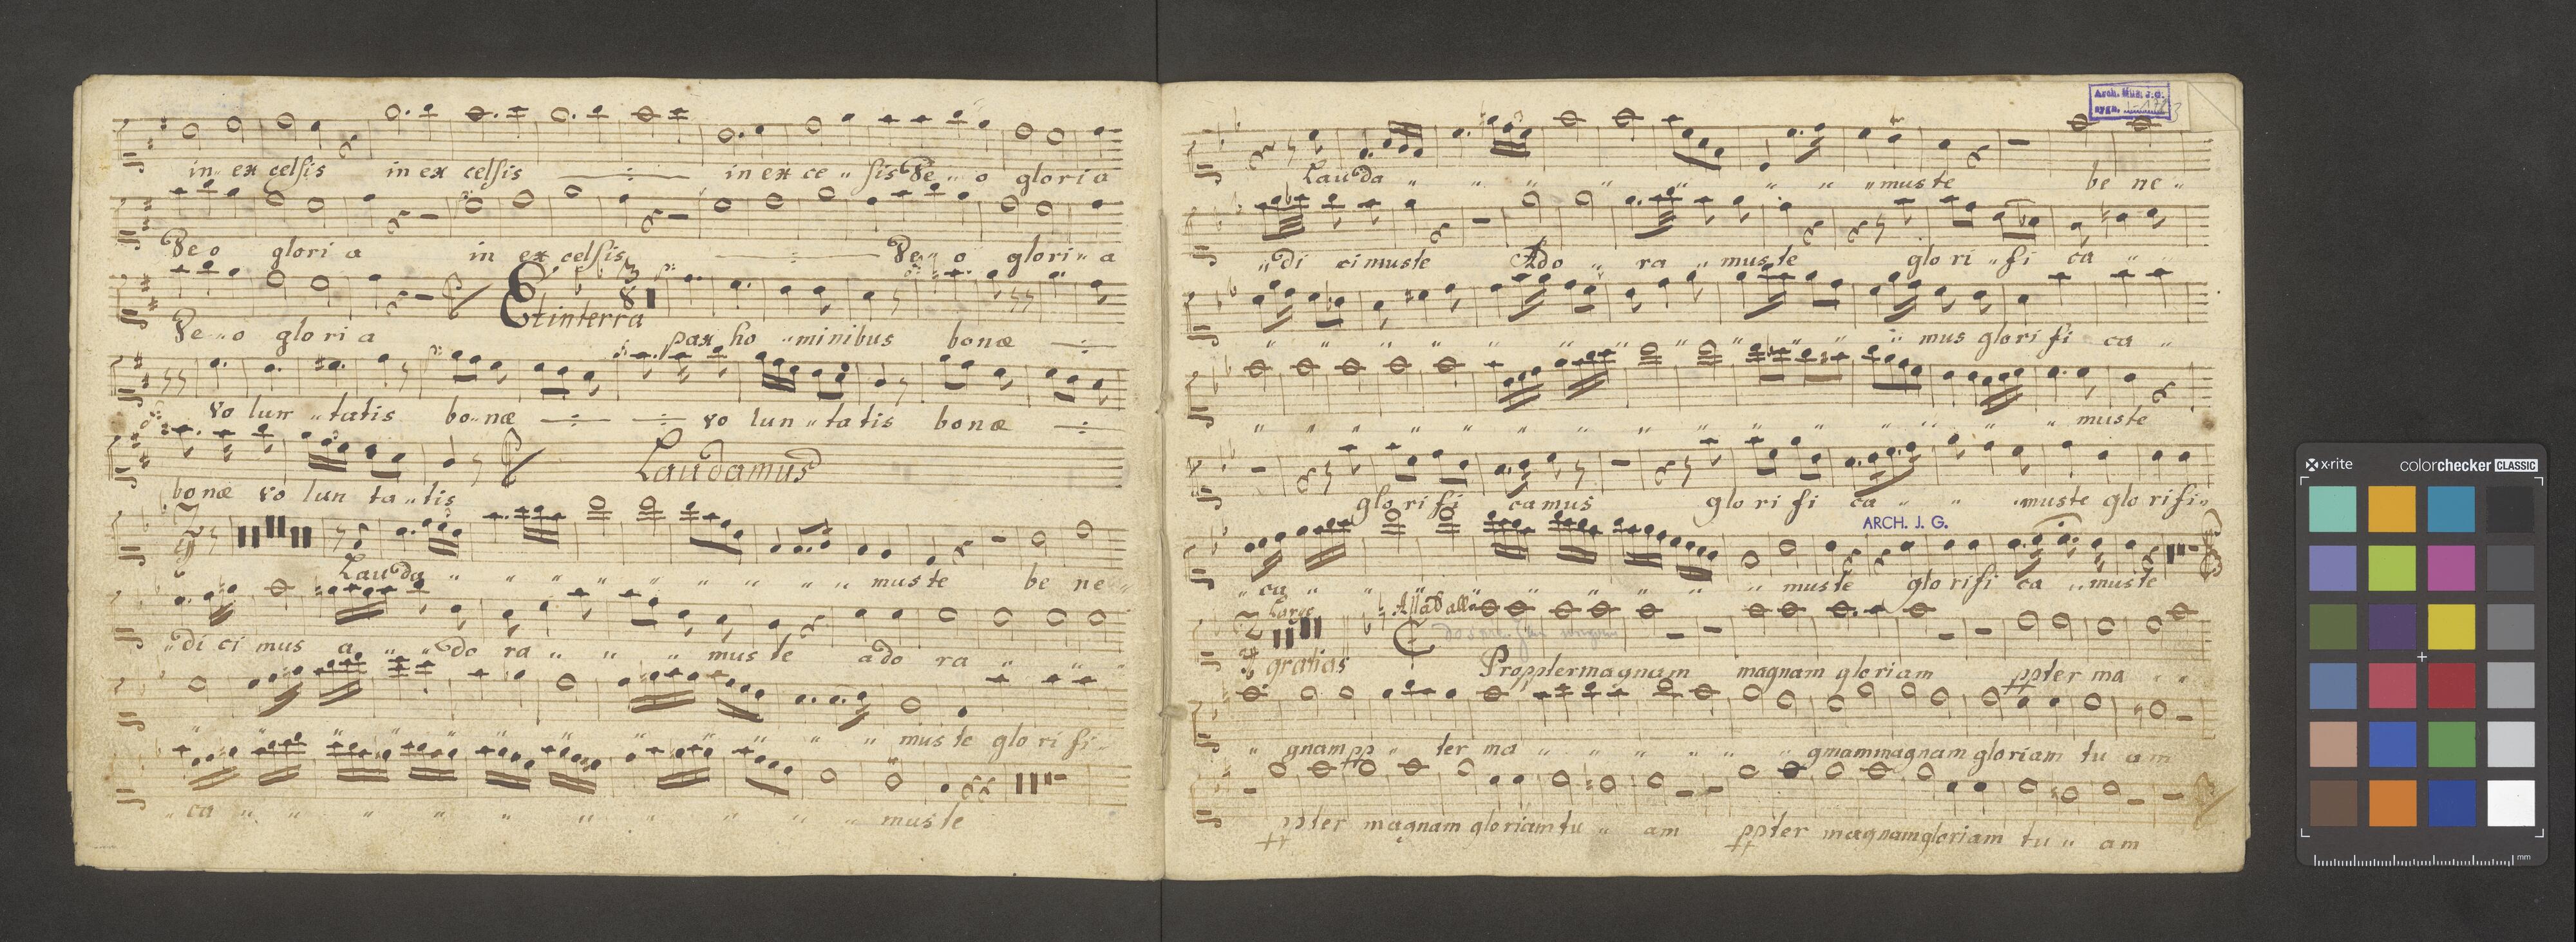 in ex celsis in ex celsis in ex ce „ sis De „ o gloria
De o gloria in ex celsis De „ o glori „ a
Et in terra
De „ o gloria pax ho „ minibus bonæ
vo lun „ tatis bo „ næ vo lun „ ta tis bonæ
Laudamus
bonæ vo lun ta „ tis
Lauda „ „ „ „ „ „ „ „ „ muste be ne „
„ di ci mus a „ „ do ra „ „ „ muste ado ra „ „ „
„ „ „ „ „ „ „ muste glo ri fi „
„ ca „ „ „ „ „ „ „ „ „ „ muste
Arch. Muz. J.G.
sygn.
Lauda „ „ „ „ „ „ „ „ muste be ne „
„ di ci muste Ado „ ra „ muste glo ri „ fi ca „ „
„ „ „ „ „ „ „ „ „ mus glori fi ca „
„ „ „ „ „ „ „ „ „ „ „ „ „ „ muste
glo ri fi camus glo ri fi ca „ „ „ muste glo rifi „
ARCH. J. G.
„ ca „ „ „ „ „ „ „ „ muste glo rifi ca „ muste
Largo All ad alla
gratias Proppter magnam magnam gloriam ppter ma „ „
„ gnam pp „ ter ma „ „ „ „ „ „ gnam magnam gloriam tu am
ppter magnam gloriam tu „ am ppter magnam gloriam tu „ am
x-rite colorchecker CLASSIC
mm